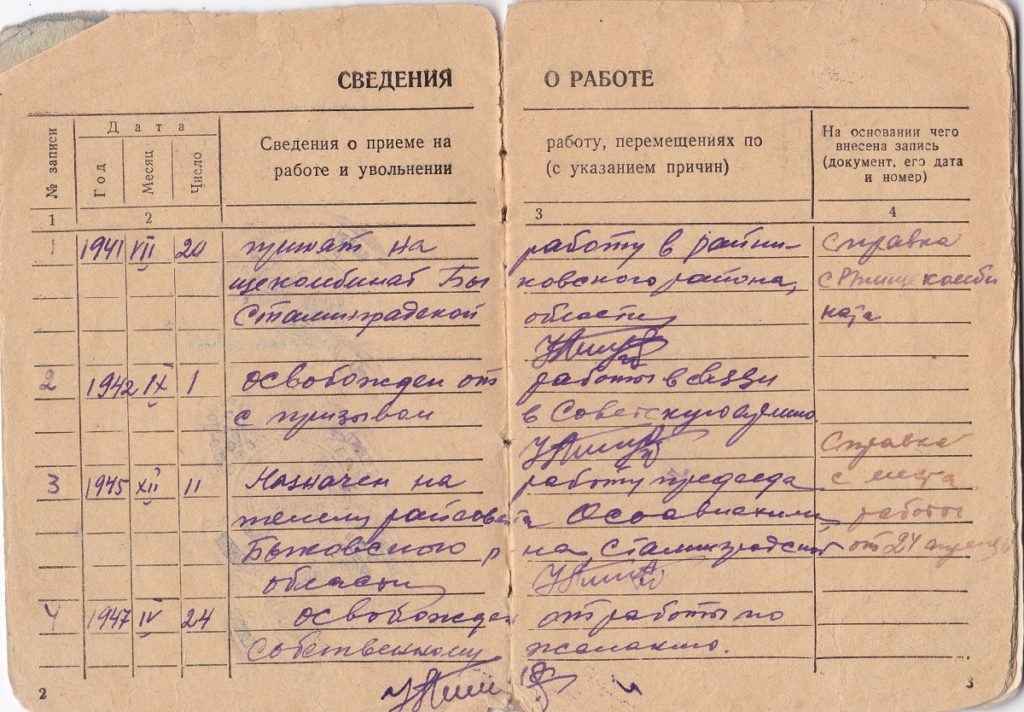 СВЕДЕНИЯ О РАБОТЕ
№ записи
Дата
Год
Месяц
Число
Сведения о приеме на работу, перемещениях по
работе и увольнении (с указанием причин)
На основании чего
внесена запись
(документ, его дата
и номер)
1 2 3 4
1 1941 VII 20 принят на работу в райпи- Справка
щекомбинат Бы ковского района, с Рпищекомби
Сталинградской области ната
2 1942 IX 1 освобожден от работы в связи
с призывом в Советскую армию.
Справка
3 1945 XII 11 Назначен на работу председа с места
телем райсовета Осоавиахима, работы
Быковского р-на, Сталинградской от 24 апреля
области
4 1947 IV 24 освобожден от работы по
собственному желанию.
2 3